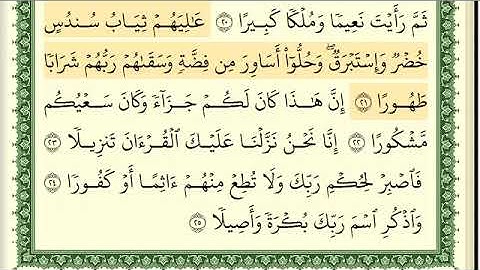 ثَمَّ رَأَيْتَ نَعِيمًا وَمُلْكًا كَبِيرًا ٢٠ عَٰلِيَهُمْ ثِيَابُ سُندُسٍ
خُضْرٌ وَإِسْتَبْرَقٌ ۖ وَحُلُّوٓا۟ أَسَاوِرَ مِن فِضَّةٍ وَسَقَىٰهُمْ رَبُّهُمْ شَرَابًا
طَهُورًا ٢١ إِنَّ هَٰذَا كَانَ لَكُمْ جَزَآءً وَكَانَ سَعْيُكُم
مَّشْكُورًا ٢٢ إِنَّا نَحْنُ نَزَّلْنَا عَلَيْكَ ٱلْقُرْءَانَ تَنزِيلًا ٢٣
فَٱصْبِرْ لِحُكْمِ رَبِّكَ وَلَا تُطِعْ مِنْهُمْ ءَاثِمًا أَوْ كَفُورًا ٢٤
وَٱذْكُرِ ٱسْمَ رَبِّكَ بُكْرَةً وَأَصِيلًا ٢٥